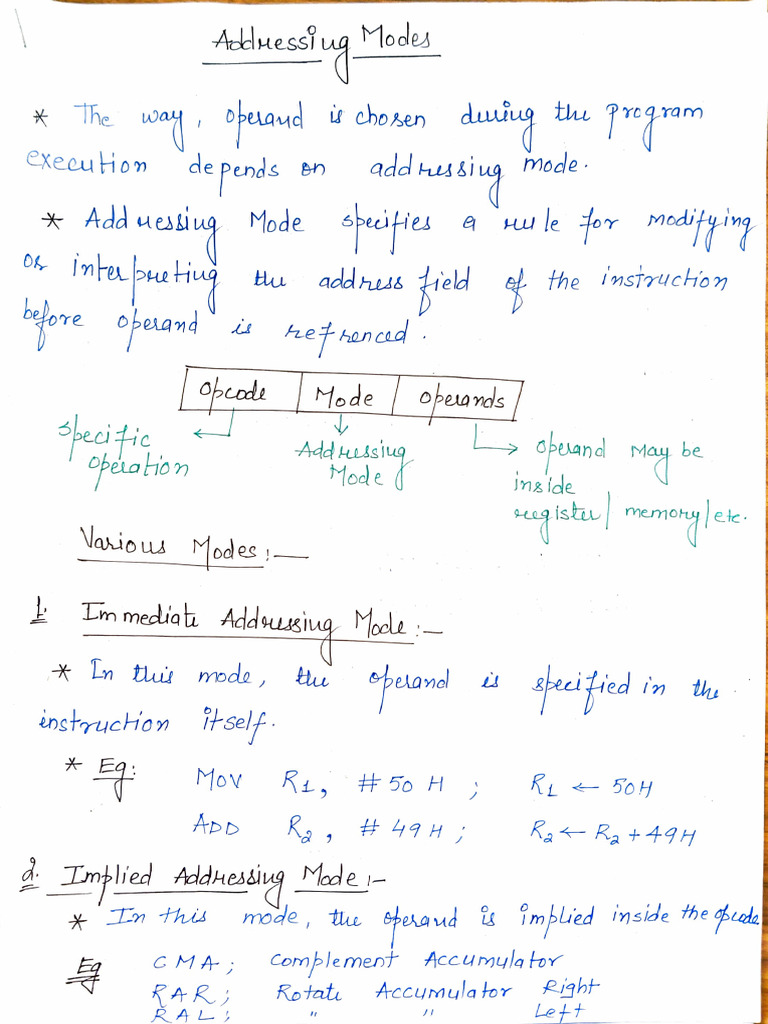 Addressing Modes
* The way, operand is chosen during the program
execution depends on addressing mode.
* Addressing Mode specifies a rule for modifying
or interpreting the address field of the instruction
before operand is refrenced.
Opcode | Mode | Operands
specific operation
Addressing Mode
operand may be inside register/ memory/etc.
Various Modes:—
1. Immediate Addressing Mode:—
* In this mode, the operand is specified in the
instruction itself.
* Eg: MOV R1, #50 H ; R1 ← 50H
ADD R2, #49H; R2 ← R2 + 49H
2. Implied Addressing Mode:-
* In this mode, the operand is implied inside the opcode
Eg CMA; Complement Accumulator
RAR; Rotate Accumulator Right
RAL; " " Left